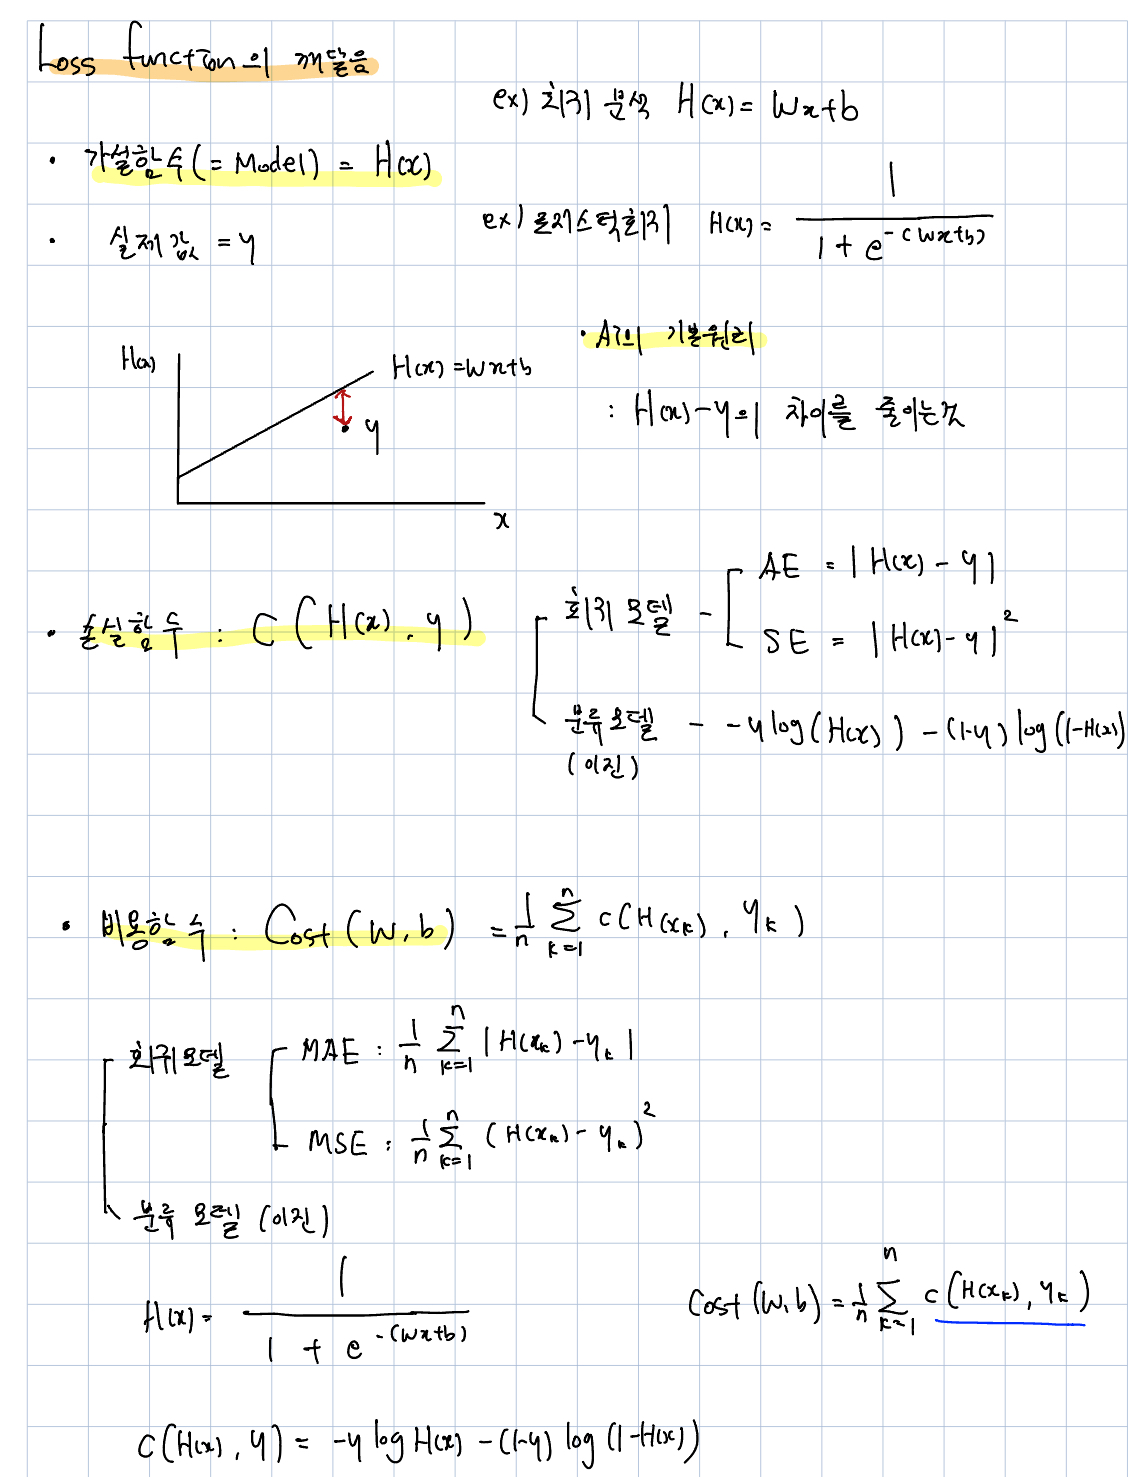 Loss function의 깨달음
ex) 회귀 분석 H(x) = Wx+b
· 가설함수(= Model) = H(x)
ex) 로지스틱회귀 H(x) = 1 / (1 + e^-(Wx+b))
· 실제값 = y
· AI의 기본원리
: H(x)-y의 차이를 줄이는것
H(x)
H(x) = Wx+b
y
x
· 손실함수 : C(H(x), y)
회귀 모델 - AE = |H(x) - y|
SE = |H(x) - y|²
분류모델 - -y log(H(x)) - (1-y) log(1-H(x))
(이진)
· 비용함수 : Cost(W, b) = 1/n Σ_{k=1}^{n} c(H(x_k), y_k)
회귀모델 MAE : 1/n Σ_{k=1}^{n} |H(x_k) - y_k|
MSE : 1/n Σ_{k=1}^{n} (H(x_k) - y_k)²
분류 모델 (이진)
H(x) = 1 / (1 + e^-(Wx+b))
Cost(W, b) = 1/n Σ_{k=1}^{n} c(H(x_k), y_k)
C(H(x), y) = -y log H(x) - (1-y) log (1-H(x))